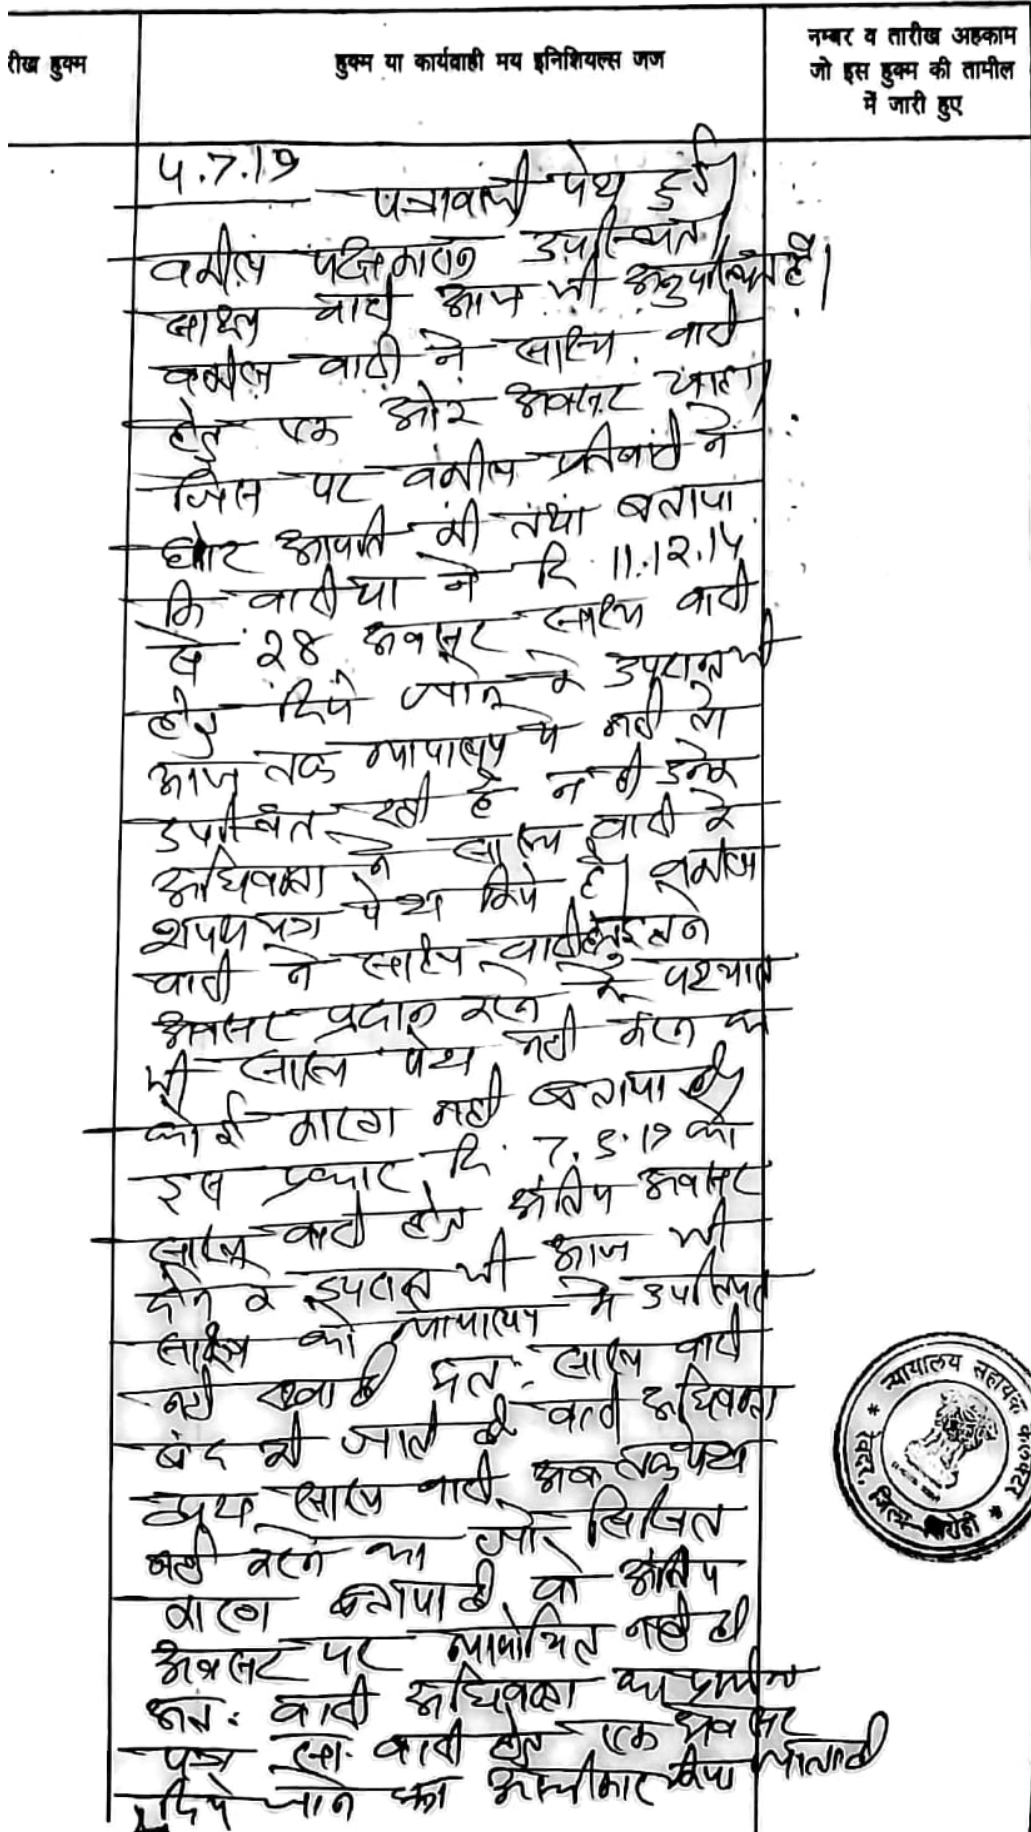 रीख हुक्म
हुक्म या कार्यवाही मय इनिशियल्स जज
नम्बर व तारीख अहकाम
जो इस हुक्म की तामील
में जारी हुए
4.7.19
पत्रावली पेश हुई।
वकील पक्षकारान उपस्थित।
साक्ष्य वादी आज भी अनुपस्थित है।
वकील वादी ने साक्ष्य वादी
हेतु एक और अवसर चाहा।
जिस पर वकील प्रतिवादी ने
घोर आपति की तथा बताया
कि वादीया ने दि 11.12.14
से 28 अवसर साक्ष्य वादी
हेतु दिये जाने के उपरान्त भी
आज तक न्यायालय मे नही तो
उपस्थित रही है न ही उनके
अधिवक्ता ने साक्ष्य वादी के
शपथ पत्र पेश किये है। वकील
वादी ने साक्ष्य वादी हेतु इतने
अवसर प्रदान करने के पश्चात
भी साक्ष्य पेश नही करने का
कोई कारण नही बताया है।
इस प्रकार दि. 7.5.19 को
साक्ष्य वादी हेतु अंतिम अवसर
देने के उपरान्त भी आज भी
साक्ष्य को न्यायालय मे उपस्थित
नही रखा है अत: साक्ष्य वादी
बंद की जाती है वादी अधिवक्ता
द्वारा साक्ष्य वादी अब तक पेश
नही करने का जो लिखित
कारण बताया है, वो अंतिम
अवसर पर न्यायोचित नही है
अत: वादी अधिवक्ता का प्रार्थना
पत्र सा. वादी हेतु एक अवसर
दिये जाने का अस्वीकार किया जाता है
न्यायालय सहायक कलेक्टर
रेवदर, जिला-सिरोही